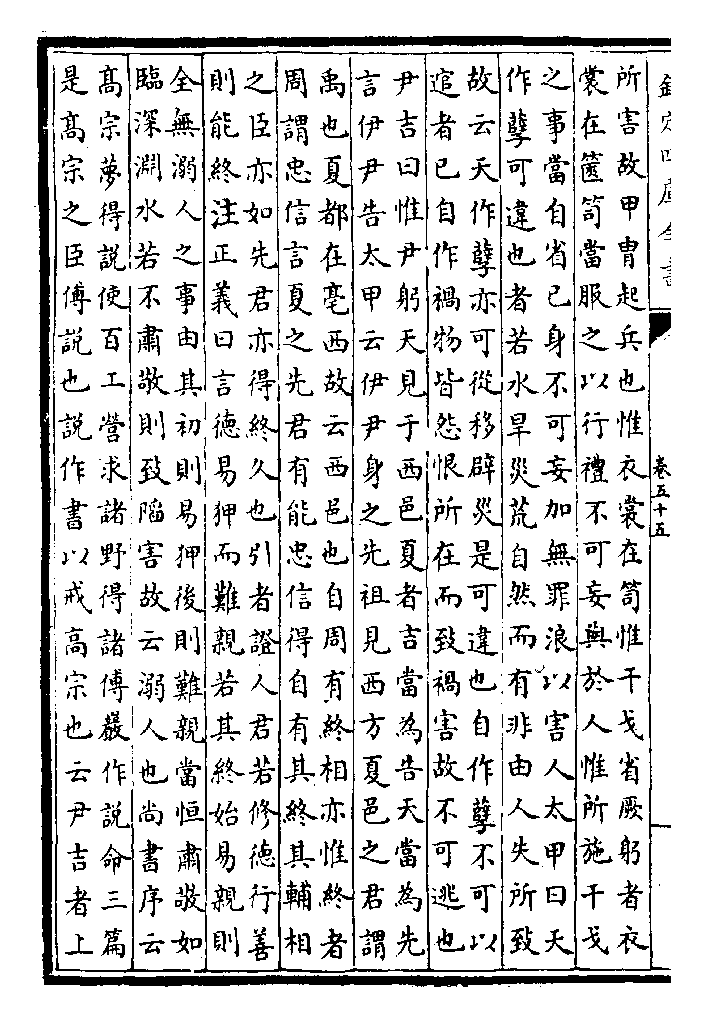 欽定四庫全書
卷五十五
所害故甲冑起兵也惟衣裳在笥惟干戈省厥躬者衣
裳在篋笥當服之以行禮不可妄與於人惟所施干戈
之事當自省已身不可妄加無罪浪以害人太甲曰天
作孽可違也者若水旱災荒自然而有非由人失所致
故云天作孽亦可從移辟災是可違也自作孽不可以
逭者已自作禍物皆怨恨所在而致禍害故不可逃也
尹吉曰惟尹躬天見于西邑夏者吉當為告天當為先
言伊尹告太甲云伊尹身之先祖見西方夏邑之君謂
禹也夏都在亳西故云西邑也自周有終相亦惟終者
周謂忠信言夏之先君有能忠信得自有其終其輔相
之臣亦如先君亦得終久也引者證人君若修德行善
則能終注正義曰言德易狎而難親若其終始易親則
全無溺人之事由其初則易狎後則難親當恒肅敬如
臨深淵水若不肅敬則致陷害故云溺人也尚書序云
髙宗夢得説使百工營求諸野得諸傅巖作説命三篇
是髙宗之臣傅説也説作書以戒高宗也云尹吉者上